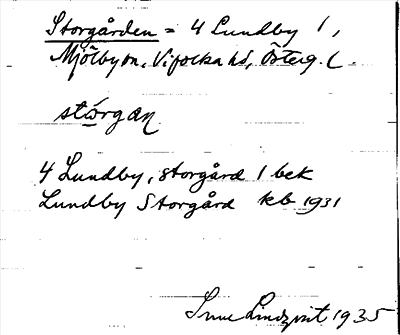 Storgården = 4 Lundby 1,
Mjölby sn, Vifolka hd, Österg. l.
stórgan
4 Lundby, storgård 1 bek
Lundby Storgård kb 1931
Sune Lindqvist 1935